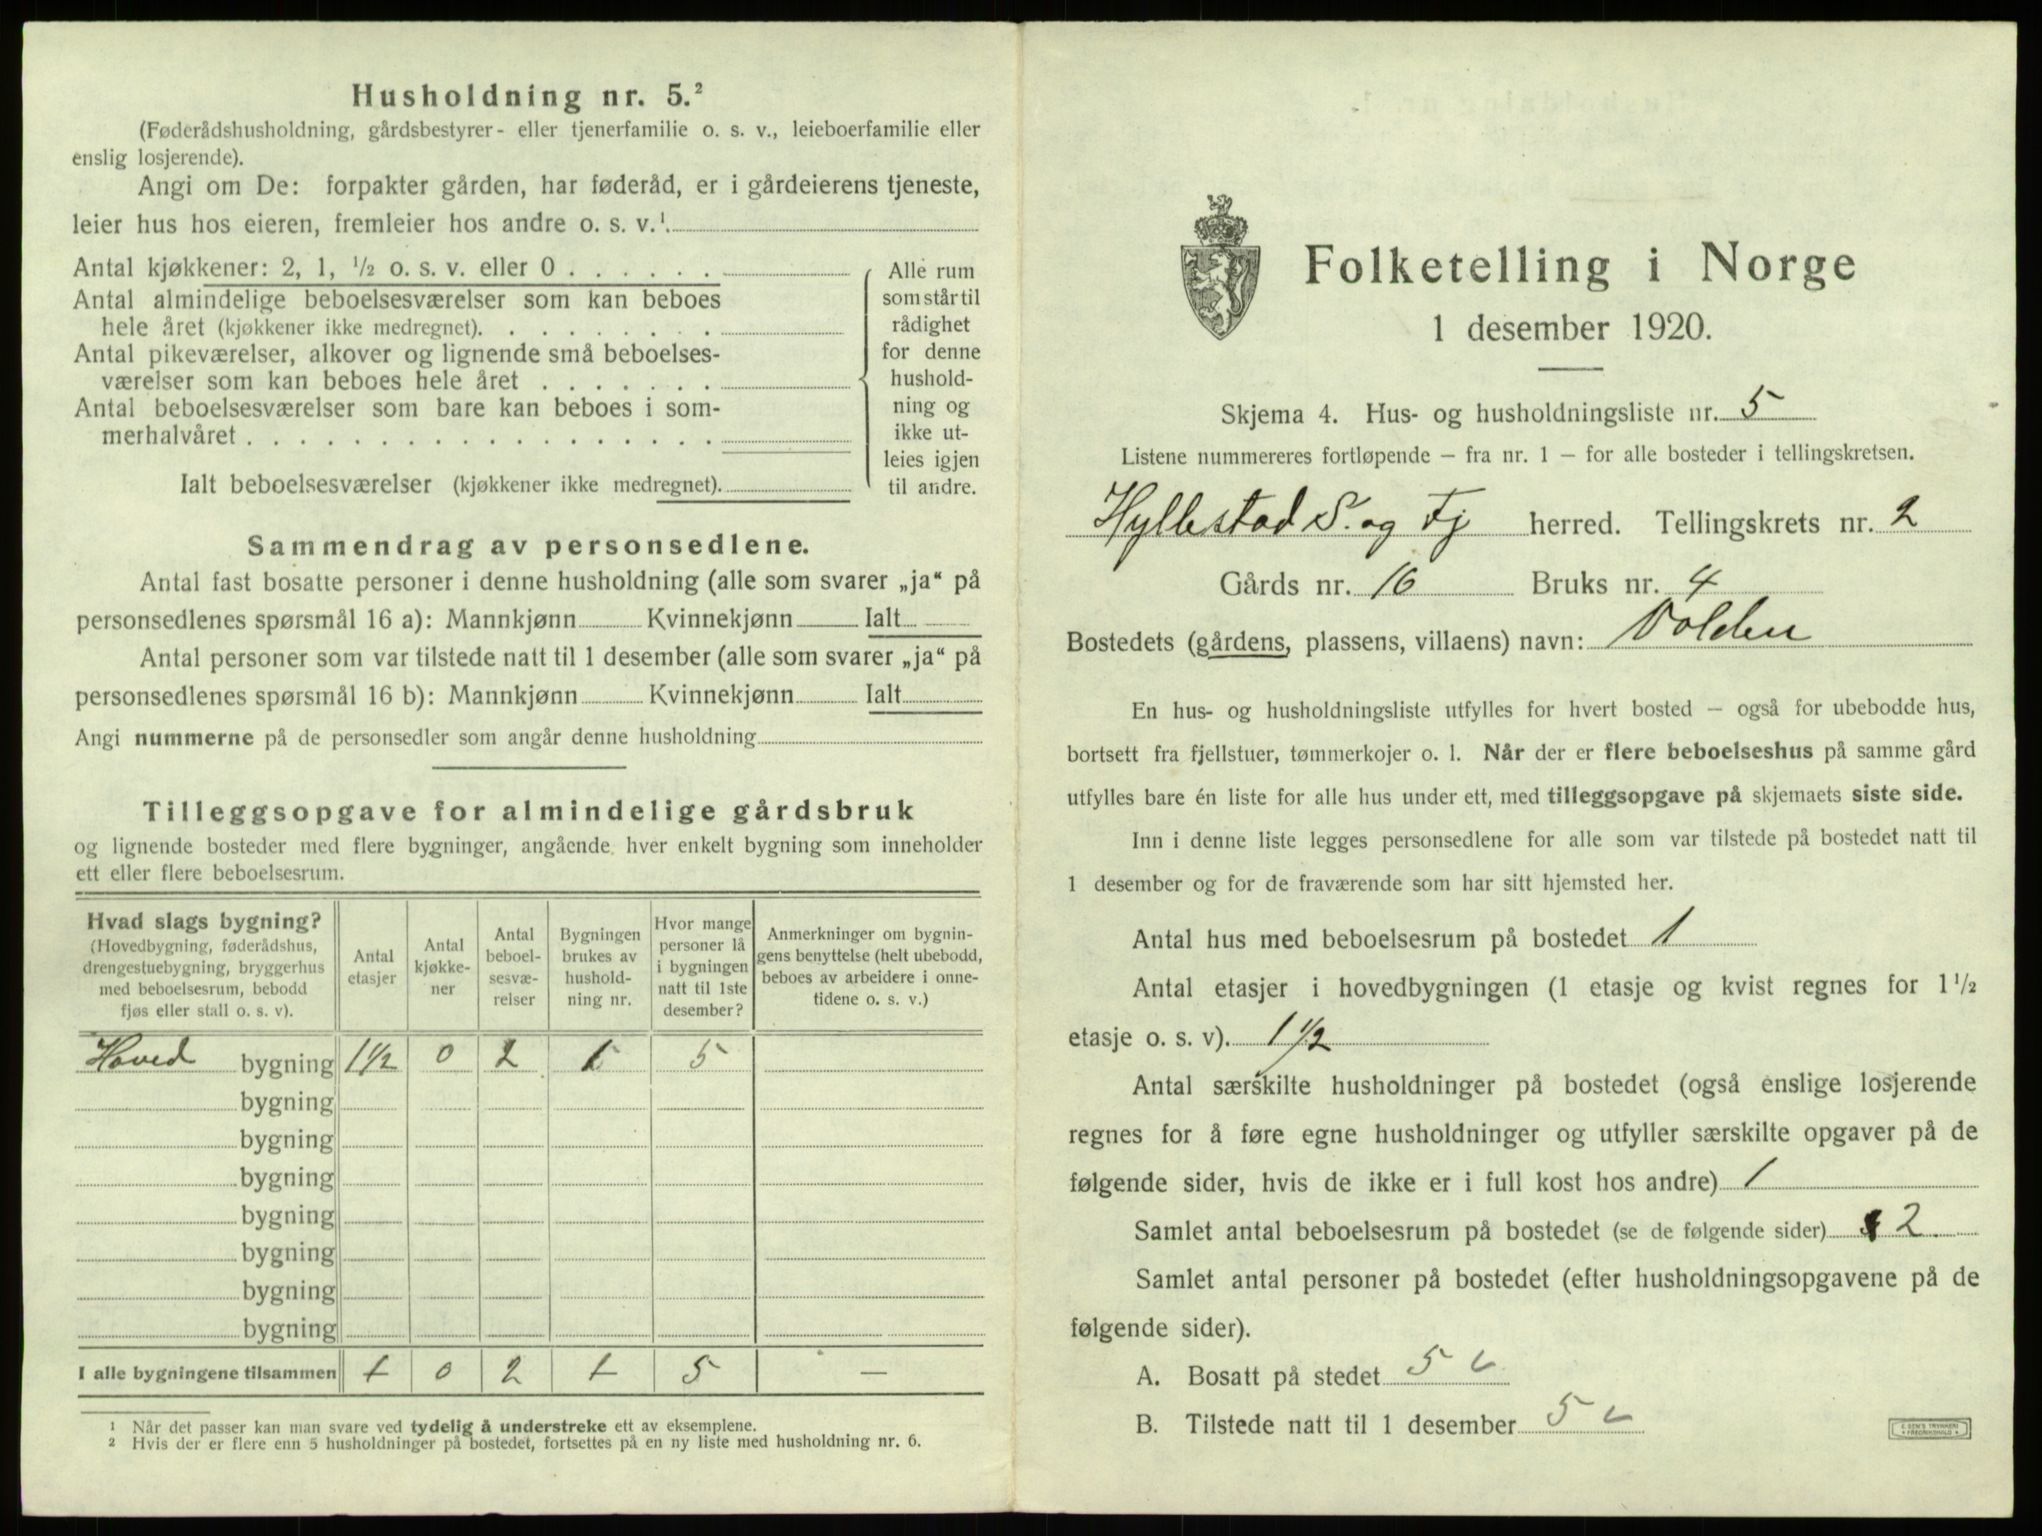 Husholdning nr. 5.²
(Føderådshusholdning, gårdsbestyrer- eller tjenerfamilie o. s. v., leieboerfamilie eller
enslig losjerende).
Angi om De: forpakter gården, har føderåd, er i gårdeierens tjeneste,
leier hus hos eieren, fremleier hos andre o. s. v.¹
Antal kjøkkener: 2, 1, ½ o. s. v. eller 0 . . . . . .
Antal almindelige beboelsesværelser som kan beboes
hele året (kjøkkener ikke medregnet). . . . . . . . .
Antal pikeværelser, alkover og lignende små beboelses-
værelser som kan beboes hele året . . . . . . .
Antal beboelsesværelser som bare kan beboes i som-
merhalvåret . . . . . . . . . . . . . . . . . .
Ialt beboelsesværelser (kjøkkener ikke medregnet).
Alle rum
som står til
rådighet
for denne
hushold-
ning og
ikke ut-
leies igjen
til andre.
Sammendrag av personsedlene.
Antal fast bosatte personer i denne husholdning (alle som svarer „ja“ på
personsedlenes spørsmål 16 a): Mannkjønn Kvinnekjønn Ialt
Antal personer som var tilstede natt til 1 desember (alle som svarer „ja“ på
personsedlenes spørsmål 16 b): Mannkjønn Kvinnekjønn Ialt
Angi nummerne på de personsedler som angår denne husholdning
Tilleggsopgave for almindelige gårdsbruk
og lignende bosteder med flere bygninger, angående hver enkelt bygning som inneholder
ett eller flere beboelsesrum.
Hvad slags bygning?
(Hovedbygning, føderådshus,
drengestuebygning, bryggerhus
med beboelsesrum, bebodd
fjøs eller stall o. s. v).
Antal
etasjer
Antal
kjøkke-
ner
Antal
beboel-
sesvæ-
relser
Bygningen
brukes av
hushold-
ning nr.
Hvor mange
personer lå
i bygningen
natt til 1ste
desember?
Anmerkninger om bygnin-
gens benyttelse (helt ubebodd,
beboes av arbeidere i onne-
tidene o. s. v.)
Hoved bygning 1½ 0 2 1 5
bygning
bygning
bygning
bygning
bygning
bygning
bygning
I alle bygningene tilsammen 1 0 2 1 5 —
¹ Når det passer kan man svare ved tydelig å understreke ett av eksemplene.
² Hvis der er flere enn 5 husholdninger på bostedet, fortsettes på en ny liste med husholdning nr. 6.
Folketelling i Norge
1 desember 1920.
Skjema 4. Hus- og husholdningsliste nr. 5
Listene nummereres fortløpende – fra nr. 1 – for alle bosteder i tellingskretsen.
Hyllestad S. og Fj herred. Tellingskrets nr. 2
Gårds nr. 16 Bruks nr. 4
Bostedets (gårdens, plassens, villaens) navn: Volden
En hus- og husholdningsliste utfylles for hvert bosted – også for ubebodde hus,
bortsett fra fjellstuer, tømmerkojer o. l. Når der er flere beboelseshus på samme gård
utfylles bare én liste for alle hus under ett, med tilleggsopgave på skjemaets siste side.
Inn i denne liste legges personsedlene for alle som var tilstede på bostedet natt til
1 desember og for de fraværende som har sitt hjemsted her.
Antal hus med beboelsesrum på bostedet 1
Antal etasjer i hovedbygningen (1 etasje og kvist regnes for 1½
etasje o. s. v). 1½
Antal særskilte husholdninger på bostedet (også enslige losjerende
regnes for å føre egne husholdninger og utfyller særskilte opgaver på de
følgende sider, hvis de ikke er i full kost hos andre) 1
Samlet antal beboelsesrum på bostedet (se de følgende sider) 2
Samlet antal personer på bostedet (efter husholdningsopgavene på de
følgende sider).
A. Bosatt på stedet 5
B. Tilstede natt til 1 desember 5